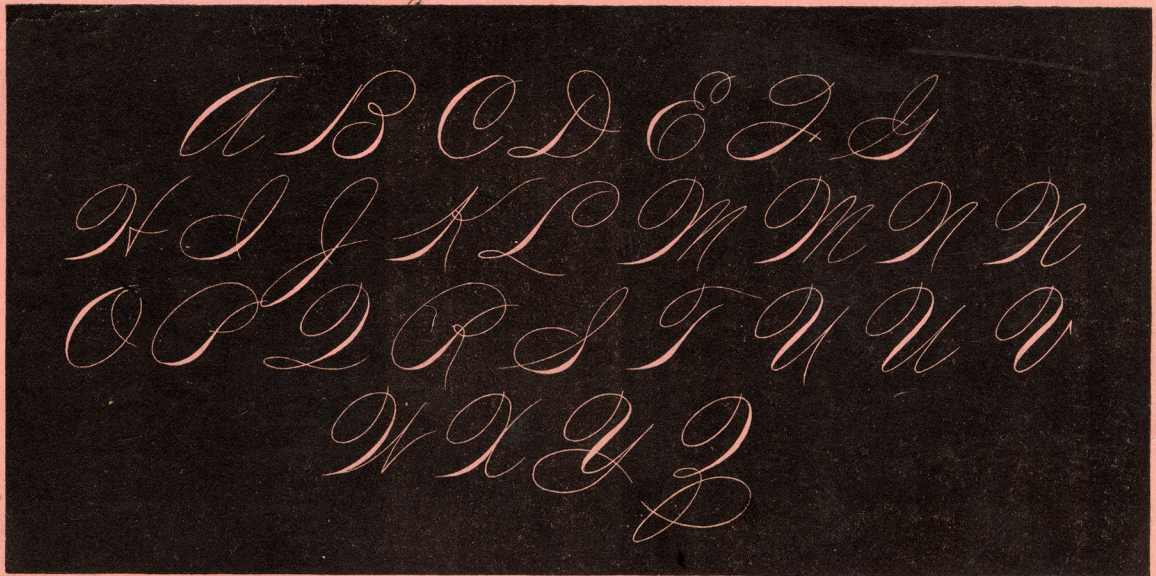 A B C D E F G
H I J K L M M N N
O P Q R S T U U V
W X Y Z